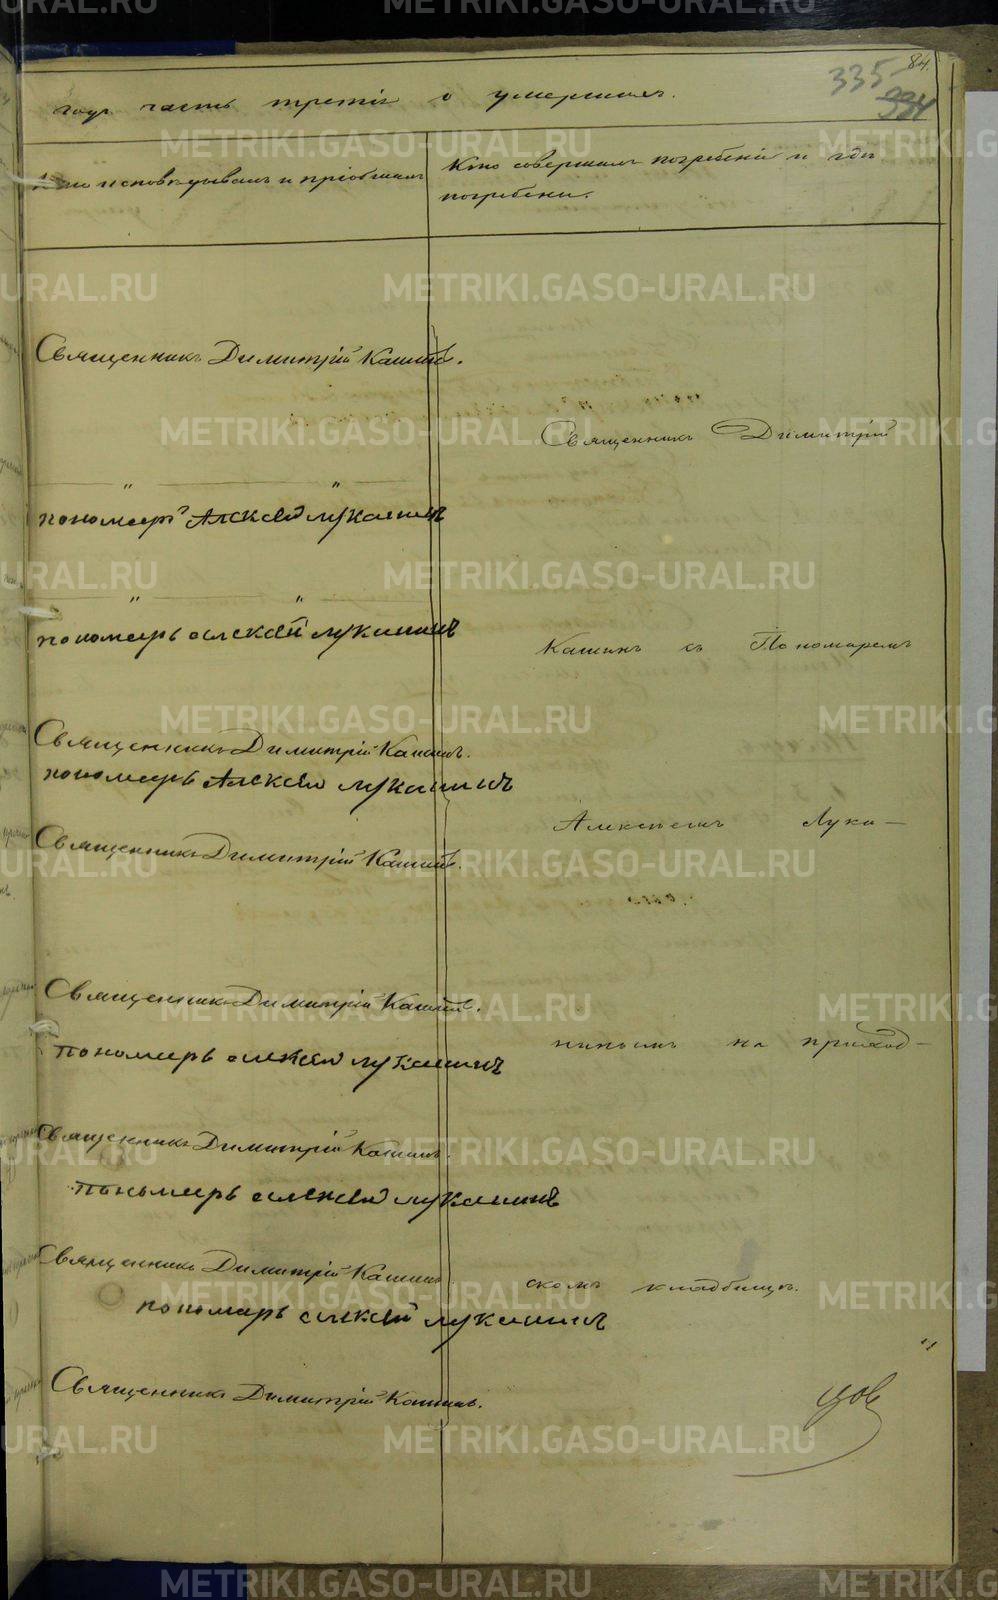 84.
335
334
году часть третiя о умершихъ.
Кто исповѣдывалъ и прiобщалъ
Кто совершалъ погребенiе и гдѣ
погребены.
Священникъ Димитрiй Кашинъ.
Священникъ Димитрiй
" "
пономарь Алексѣй Лукашинъ
" "
пономарь алексѣй лукашинъ
Кашинъ съ Пономаремъ
Священникъ Димитрiй Кашинъ.
пономарь Алексѣй лукашинъ
Алексѣемъ Лука-
Священникъ Димитрiй Кашинъ.
Священникъ Димитрiй Кашинъ.
пономарь алексѣй лукашинъ
шинымъ на приход-
Священникъ Димитрiй Кашинъ.
пономарь алексѣй лукашинъ
Священникъ Димитрiй Кашинъ.
скомъ кладбищѣ.
пономарь алексѣй лукашинъ
Священникъ Димитрiй Кашинъ.
цов
METRIKI.GASO-URAL.RU